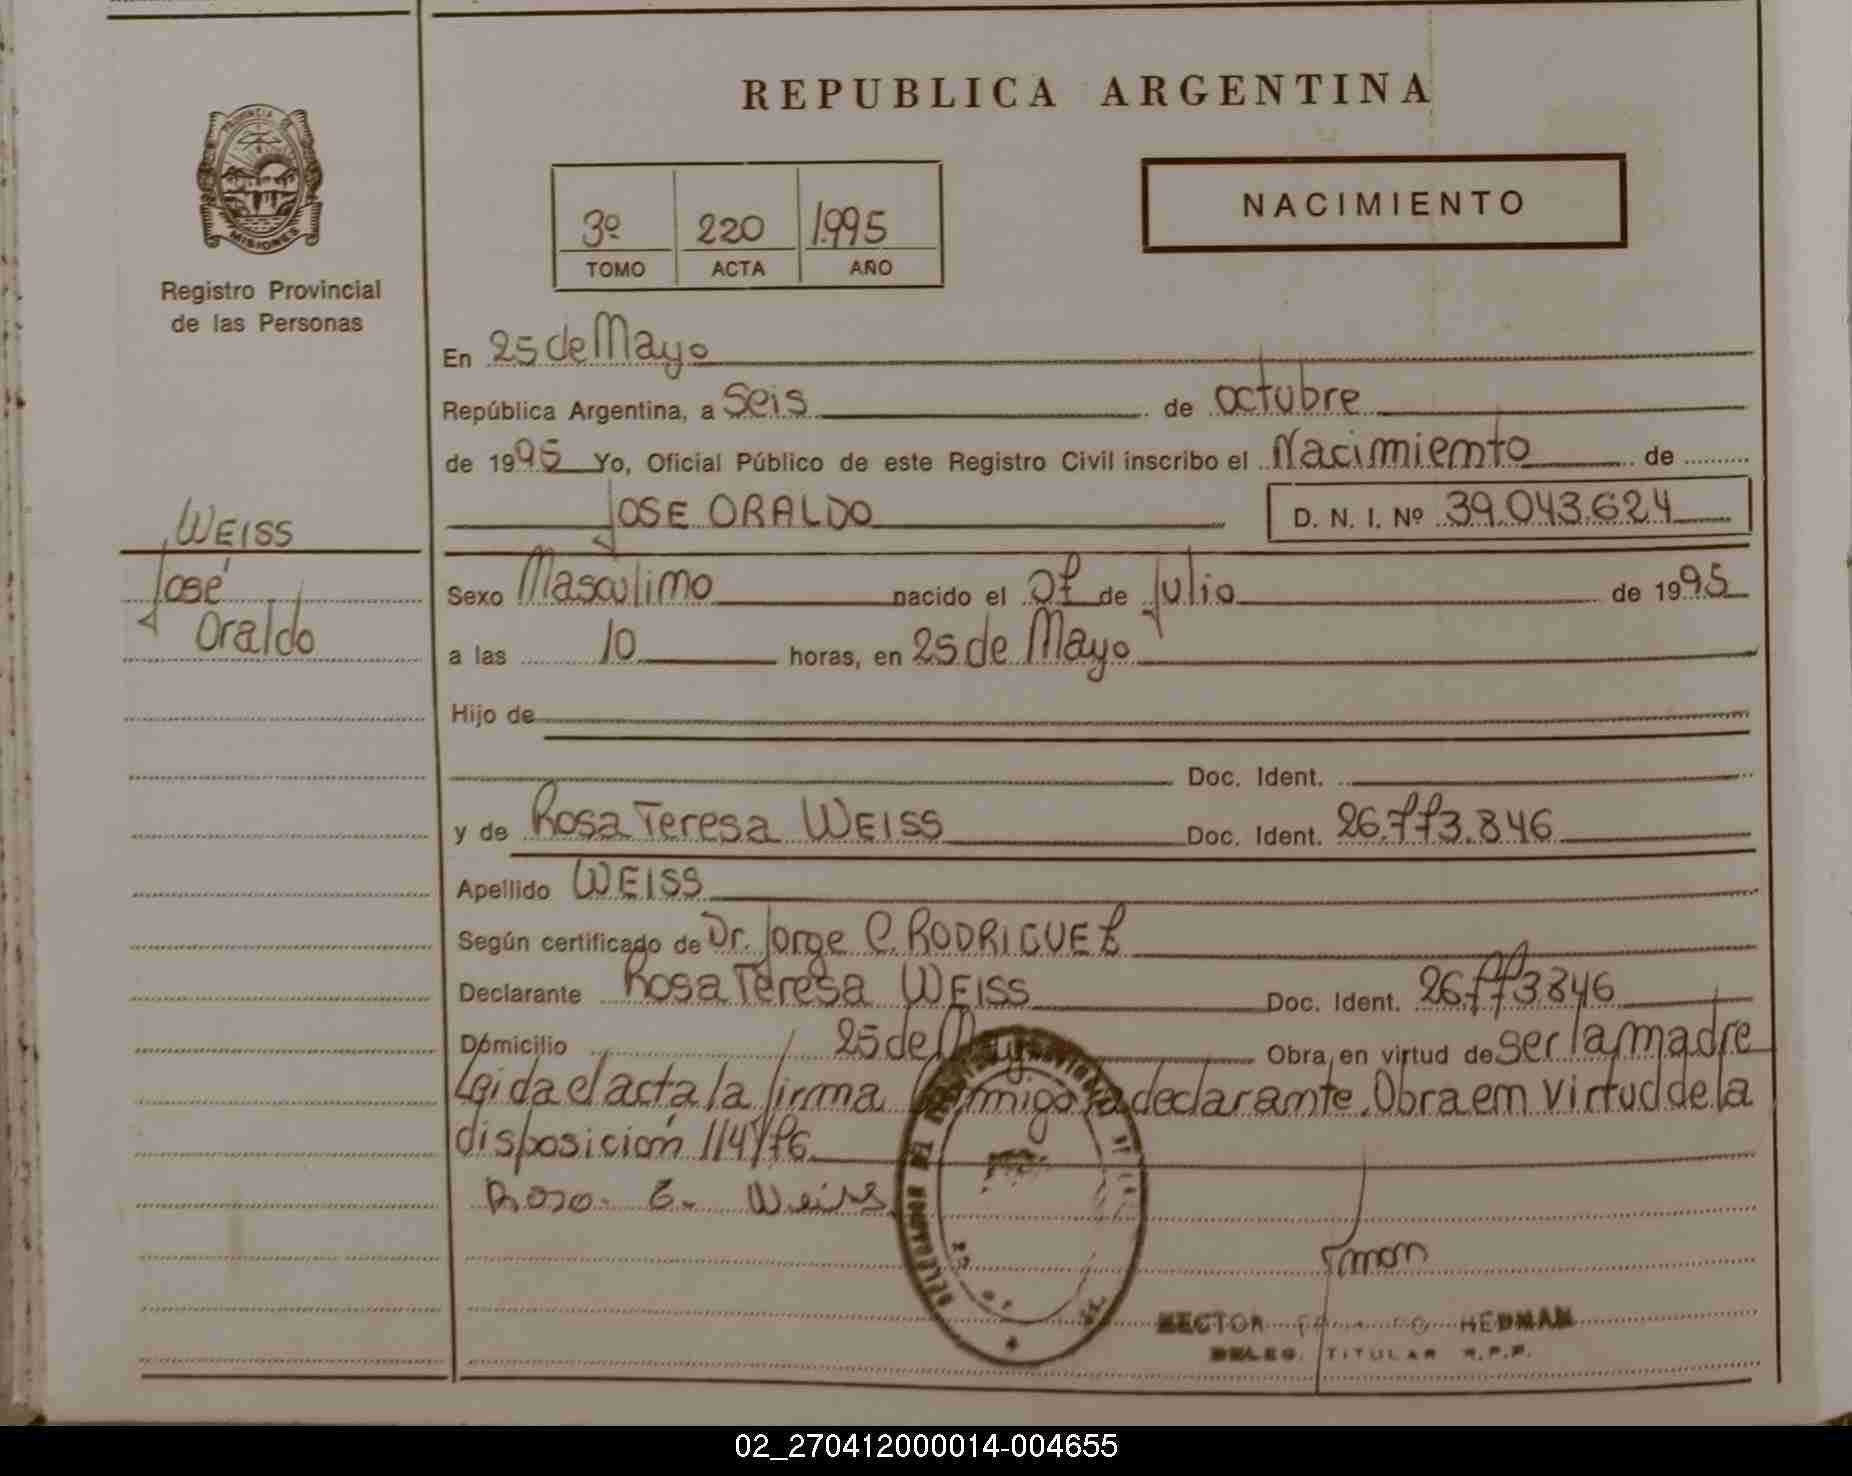 REPUBLICA ARGENTINA
PROVINCIA DE
MISIONES
Registro Provincial
de las Personas
3º 220 1.995
TOMO ACTA AÑO
NACIMIENTO
En 25 de Mayo
República Argentina, a Seis de octubre
de 1995 Yo, Oficial Público de este Registro Civil inscribo el Nacimiento de
JOSE ORALDO D. N. I. Nº 39.043.624
WEISS
José
Oraldo
Sexo Masculino nacido el 07 de Julio de 1995
a las 10 horas, en 25 de Mayo
Hijo de
Doc. Ident.
y de Rosa Teresa WEISS Doc. Ident. 26.773.846
Apellido WEISS
Según certificado de Dr. Jorge C. RODRIGUEZ
Declarante Rosa Teresa WEISS Doc. Ident. 26.773.846
Domicilio 25 de Mayo Obra, en virtud de ser la madre
Leida el acta la firma conmigo la declarante. Obra en virtud de la
disposición 114/76
Rosa. T. Weiss
HECTOR HEDMAN
DELEG. TITULAR R.P.P.
02_270412000014-004655